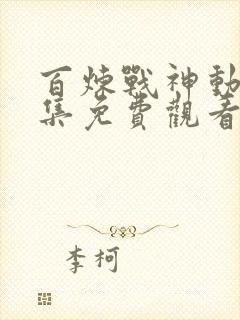 百煉戰神動
集免費觀看
李柯